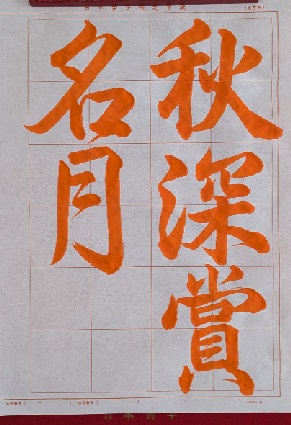 秋深賞
名月